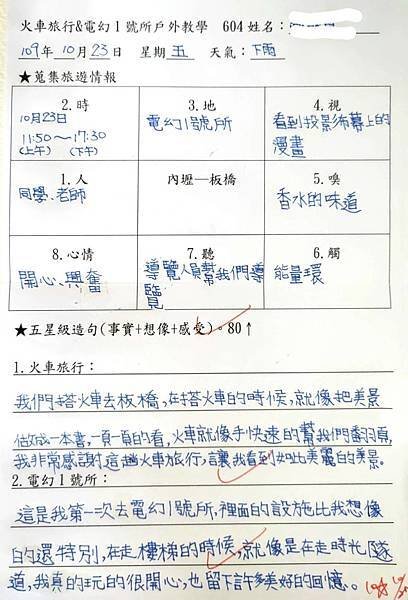 火車旅行&電幻1號所戶外教學 604 姓名：
109年10月23日 星期五 天氣：下雨
★蒐集旅遊情報
2.時
10月23日
11:50～17:30
(上午) (下午)
3.地
電幻1號所
4.視
看到投影布幕上的
漫畫
1.人
同學、老師
內壢—板橋
5.嗅
香水的味道
8.心情
開心、興奮
7.聽
導覽人員幫我們導
覽
6.觸
能量環
★五星級造句(事實+想像+感受)。80↑
1.火車旅行：
我們搭火車去板橋，在搭火車的時候，就像把美景
做成一本書，一頁一頁的看，火車就像手快速的幫我們翻頁，
我非常感謝這趟火車旅行，讓我看到如此美麗的美景。
2.電幻1號所：
這是我第一次去電幻1號所，裡面的設施比我想像
的還特別，在走樓梯的時候，就像是在走時光隧
道，我真的玩的很開心，也留下許多美好的回憶。